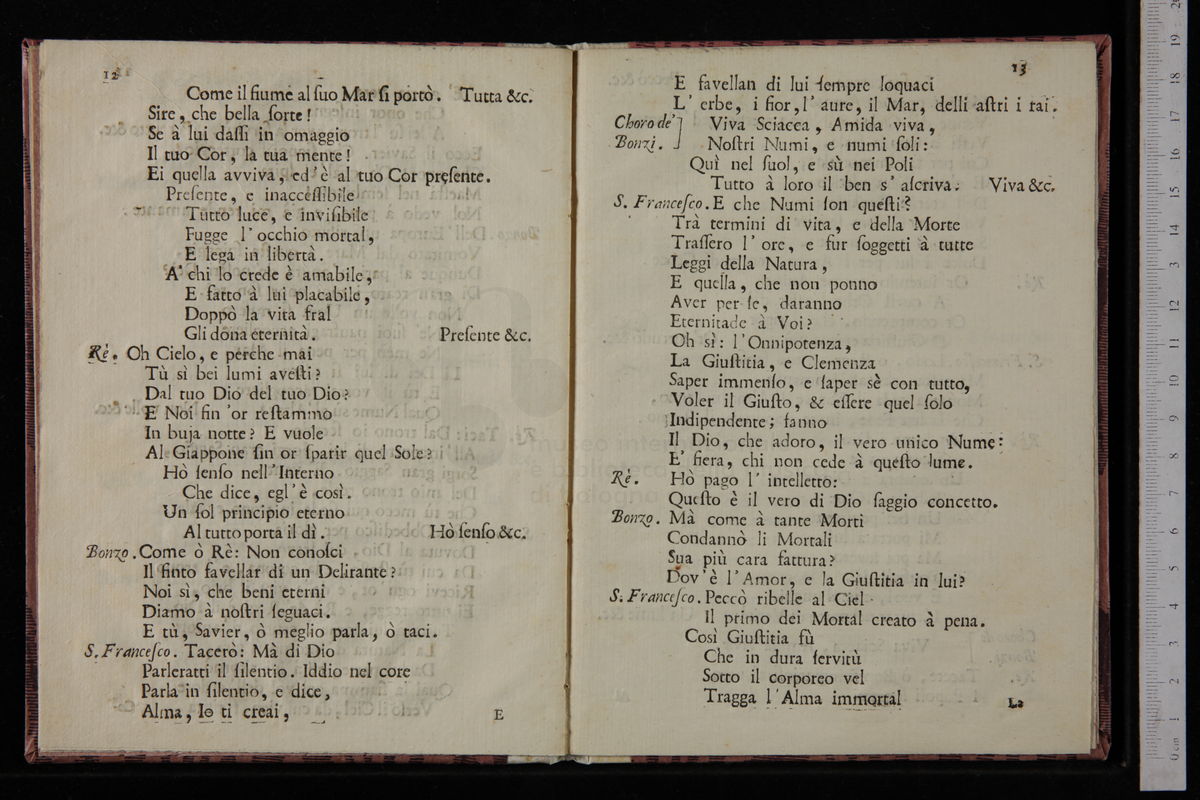 12
Come il fiume al ſuo Mar ſi portò. Tutta &c.
Sire, che bella ſorte!
Se à lui daſſi in omaggio
Il tuo Cor, la tua mente!
Ei quella avviva, ed' è al tuo Cor preſente.
Preſente, e inacceſſibile
Tutto luce, e inviſibile
Fugge l' occhio mortal,
E lega in libertà.
A' chi lo crede è amabile,
E fatto à lui placabile,
Doppò la vita fral
Gli dona eternità. Preſente &c.
Rè. Oh Cielo, e perche mai
Tù sì bei lumi aveſti?
Dal tuo Dio del tuo Dio?
E Noi fin 'or reſtammo
In buja notte? E vuole
Al Giappone fin or ſparir quel Sole?
Hò ſenſo nell' Interno
Che dice, egl' è così.
Un ſol principio eterno
Al tutto porta il dì. Hò ſenſo &c.
Bonzo. Come ò Rè: Non conoſci
Il finto favellar di un Delirante?
Noi sì, che beni eterni
Diamo à noſtri ſeguaci.
E tù, Savier, ò meglio parla, ò taci.
S. Franceſco. Tacerò: Mà di Dio
Parleratti il ſilentio. Iddio nel core
Parla in ſilentio, e dice,
Alma, Io ti creai,
E
13
E favellan di lui ſempre loquaci
L' erbe, i fior, l' aure, il Mar, delli aſtri i rai.
Choro de' Viva Sciacca, Amida viva,
Bonzi. Noſtri Numi, e numi ſoli:
Quì nel ſuol, e sù nei Poli
Tutto à loro il ben s' aſcriva. Viva &c.
S. Franceſco. E che Numi ſon queſti?
Trà termini di vita, e della Morte
Traſſero l' ore, e fur ſoggetti à tutte
Leggi della Natura,
E quella, che non ponno
Aver per ſe, daranno
Eternitade à Voi?
Oh sì: l'Onnipotenza,
La Giuſtitia, e Clemenza
Saper immenſo, e ſaper sè con tutto,
Voler il Giuſto, & eſſere quel ſolo
Indipendente; fanno
Il Dio, che adoro, il vero unico Nume:
E' fiera, chi non cede à queſto lume.
Rè. Hò pago l' intelletto:
Queſto è il vero di Dio ſaggio concetto.
Bonzo. Mà come à tante Morti
Condannò li Mortali
Sua più cara fattura?
Dov'è l'Amor, e la Giuſtitia in lui?
S. Franceſco. Peccò ribelle al Ciel
Il primo dei Mortal creato à pena.
Così Giuſtitia fù
Che in dura ſervitù
Sotto il corporeo vel
Tragga l'Alma immortal
La